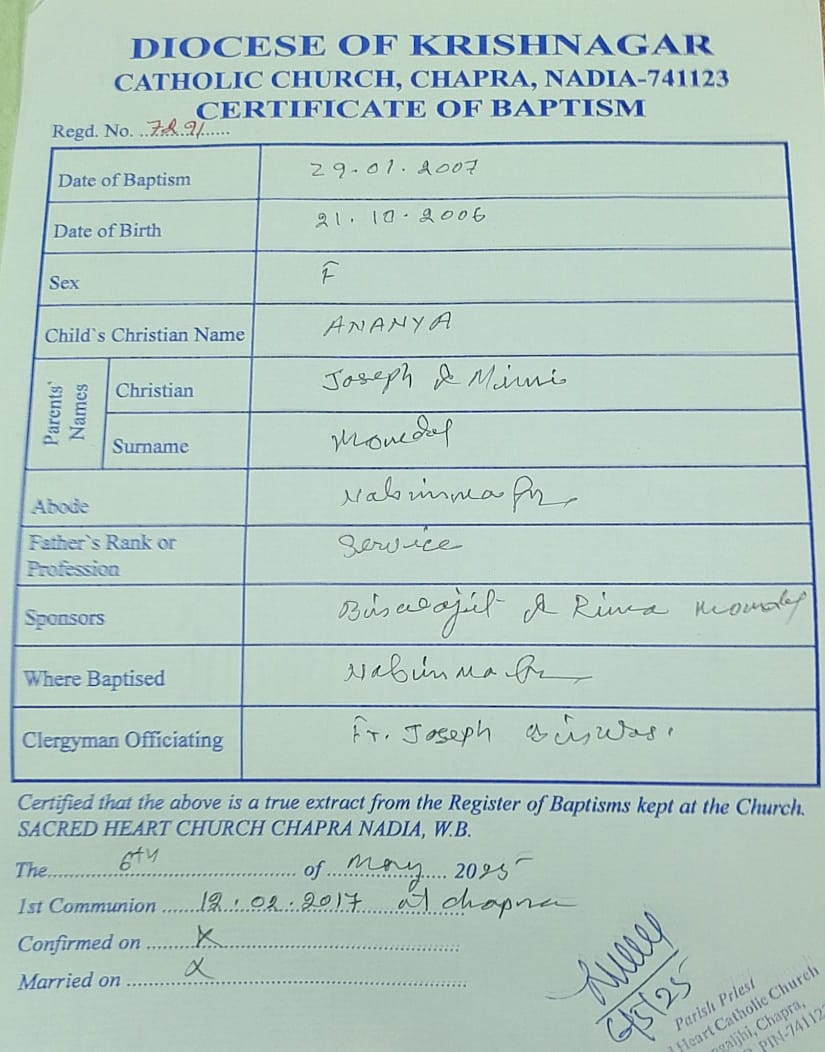 DIOCESE OF KRISHNAGAR
CATHOLIC CHURCH, CHAPRA, NADIA-741123
CERTIFICATE OF BAPTISM
Regd. No. ..7291......
Date of Baptism 29.01.2007
Date of Birth 21.10.2006
Sex F
Child`s Christian Name ANANYA
Parents' Names
Christian Joseph & Mimi
Surname Mondal
Abode
Father`s Rank or Profession Service
Sponsors & Rima Mondal
Where Baptised
Clergyman Officiating Fr. Joseph Biswas.
Certified that the above is a true extract from the Register of Baptisms kept at the Church.
SACRED HEART CHURCH CHAPRA NADIA, W.B.
The 6th of May 2025
1st Communion 12.02.2017 at Chapra
Confirmed on X
Married on X
6/5/25
Parish Priest
Heart Catholic Church
Chapra,
PIN-74112